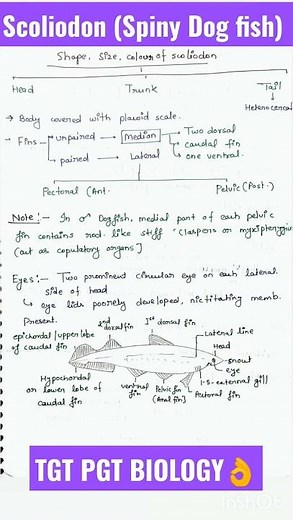 Scoliodon (Spiny Dog fish)
Shape, size, colour of scoliodon
Head Trunk Tail
Heterocercal
→ Body covered with placoid scale.
- Fins → unpaired → Median → Two dorsal
→ caudal fin
→ one ventral.
paired → Lateral
Pectoral (Ant. Pelvic (Post.)
Note :- In ♂ Dogfish, medial part of each pelvic
fin contains rod like stiff "claspers or myxipterygium
(act as copulatory organs)
Eyes:- Two prominent circular eye on each lateral
side of head
↳ eye lids poorly developed, nictitating memb.
Present.
epichordal/upper lobe
of caudal fin
2nd
dorsal fin
1st dorsal fin
Lateral line
Head
snout
eye
1-5 external gill
Pectoral fin
Pelvic fin
(Anal fin)
ventral
fin
Hypochordal
or lower lobe of
caudal fin
TGT PGT BIOLOGY👌
InShOt